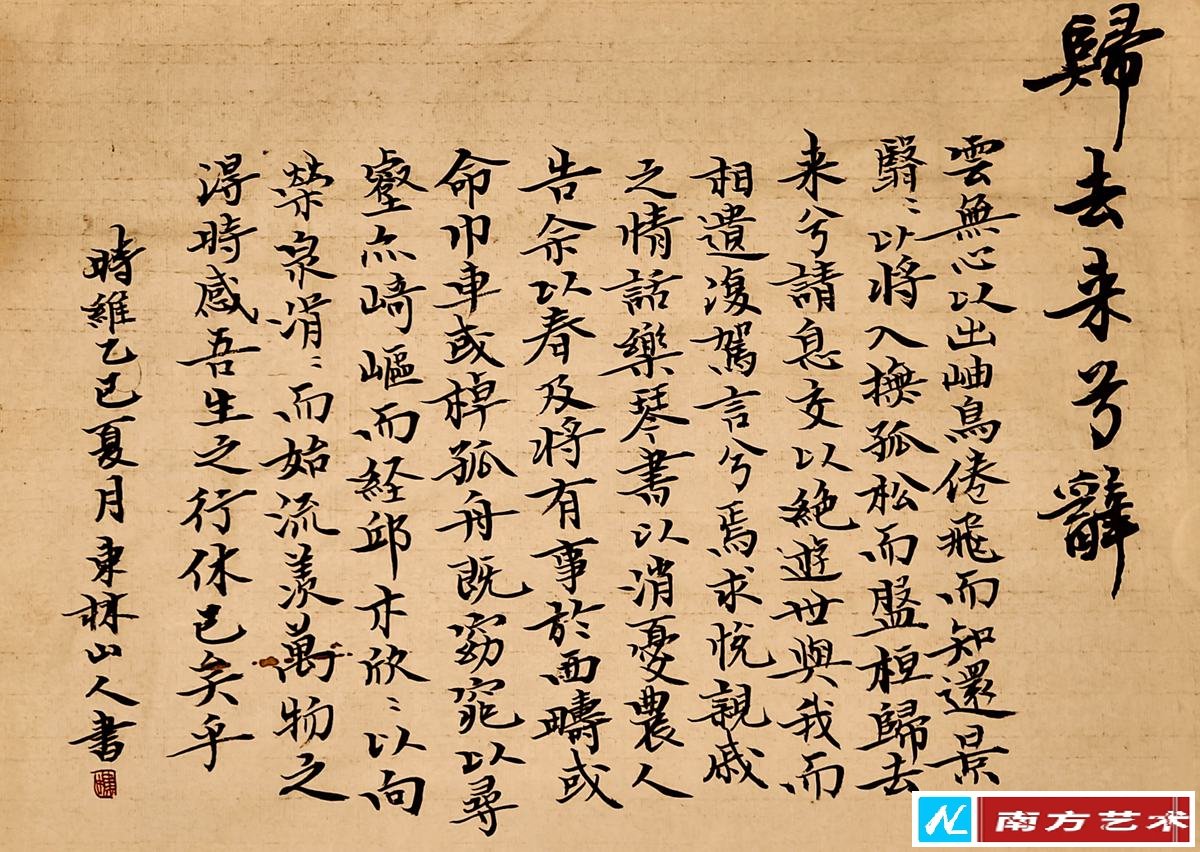 歸去来兮辭
雲無心以出岫鳥倦飛而知還景
翳〻以將入撫孤松而盤桓歸去
来兮請息交以絶遊世與我而
相遺復駕言兮焉求悅親戚
之情話樂琴書以消憂農人
告余以春及將有事於西疇或
命巾車或棹孤舟既窈窕以尋
壑亦崎嶇而経邱木欣〻以向
榮泉涓〻而始流羨萬物之
淂時感吾生之行休已矣乎
時維乙巳夏月東林山人書
南方艺术